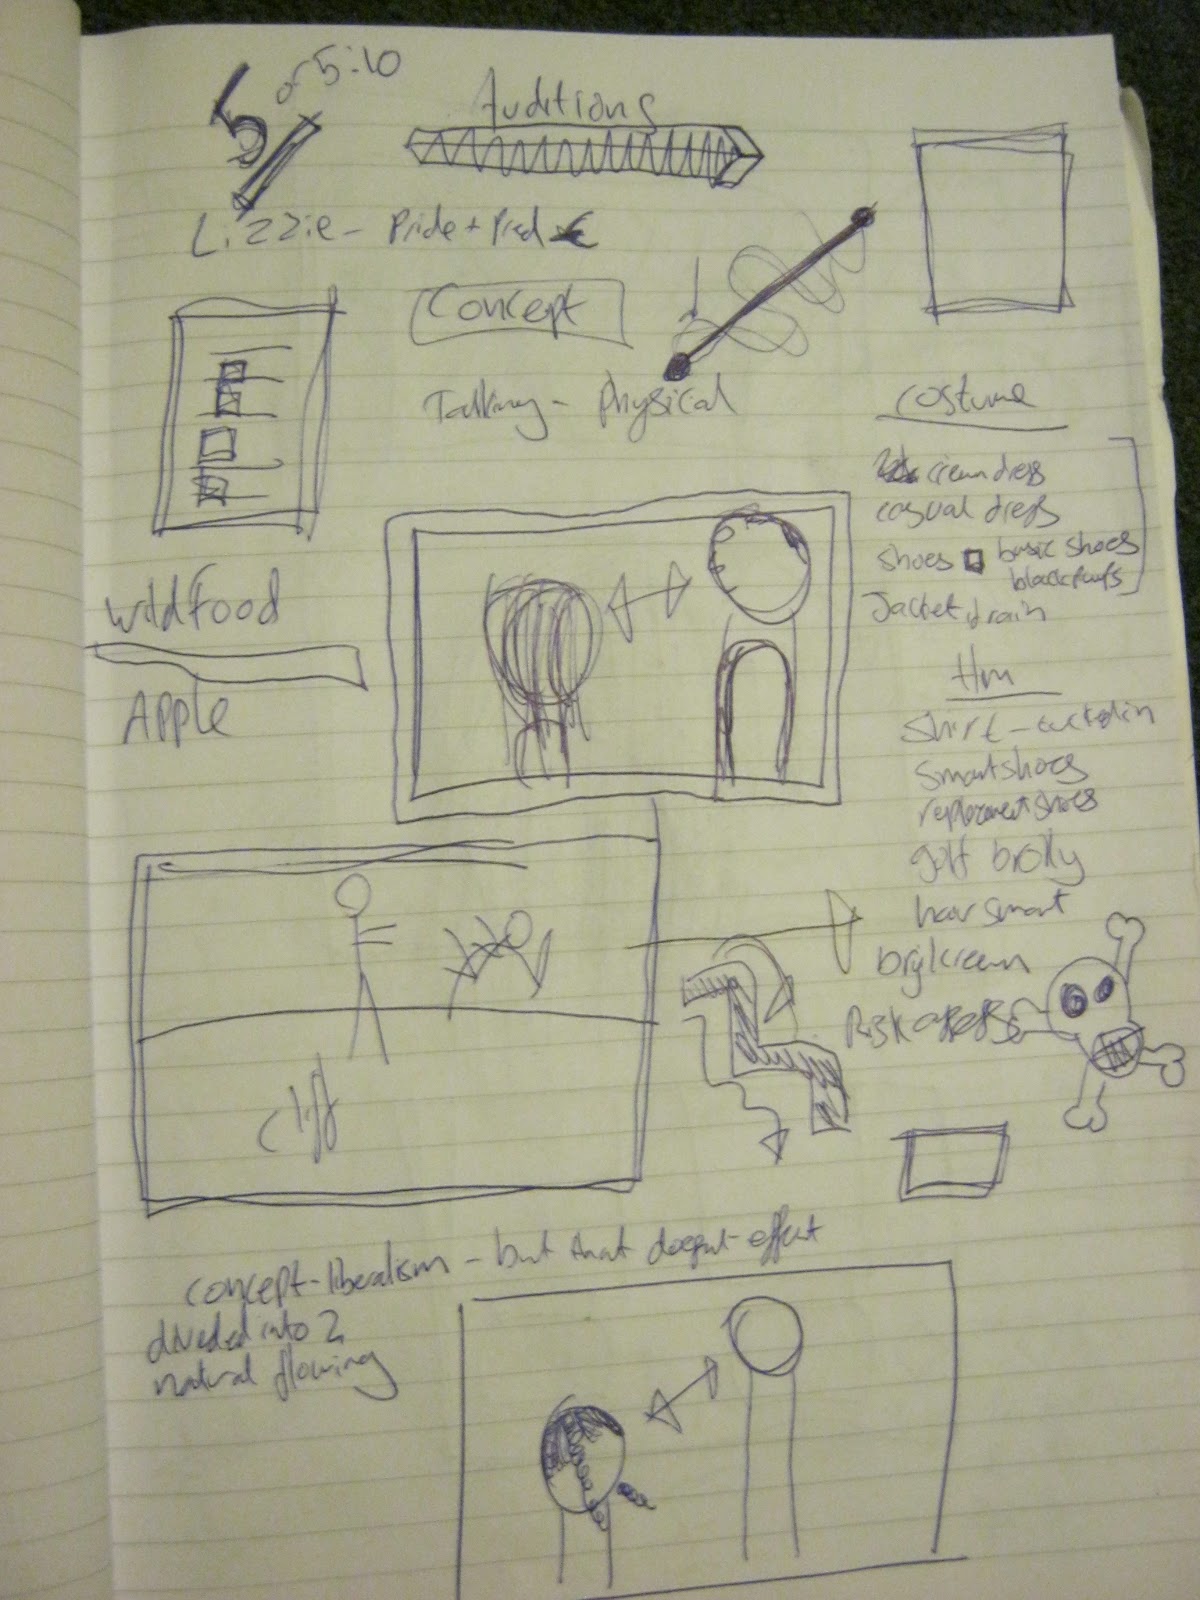 5 or 5:10
Auditions
Lizzie - Pride + Pred
Concept
Talking - Physical
Costume
cream dress
casual dress
shoes basic shoes
black
Jacket, if rain
Him
Shirt - tucked in
Smart shoes
replacement shoes
golf brolly
hair smart
brylcream
Risk
wild food
Apple
cliff
concept - liberalism - but that doesn't effect
divided into 2
natural flowing